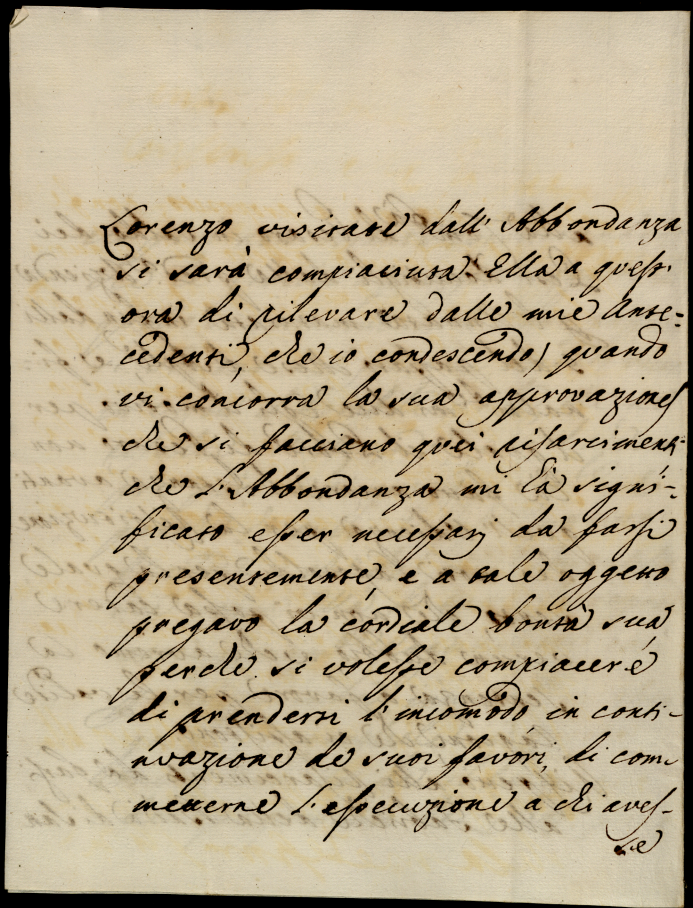 Lorenzo visitate dall' Abbondanza
si sarà compiaciuta Ella a quest'
ora di rilevare dalle mie Ante=
cedenti, che io condescendo, quando
vi concorra la sua approvazione
che si facciano quei risarcimenti
che l'Abbondanza mi hà signi=
ficato esser necessarj da farsi
presentemente, e a tale oggetto
pregavo la cordiale bontà sua
perche si volesse compiacere
di prendersi l'incomodo, in conti-
nuazione de suoi favori, di com=
metterne l'esecuzione a chi aves-
se